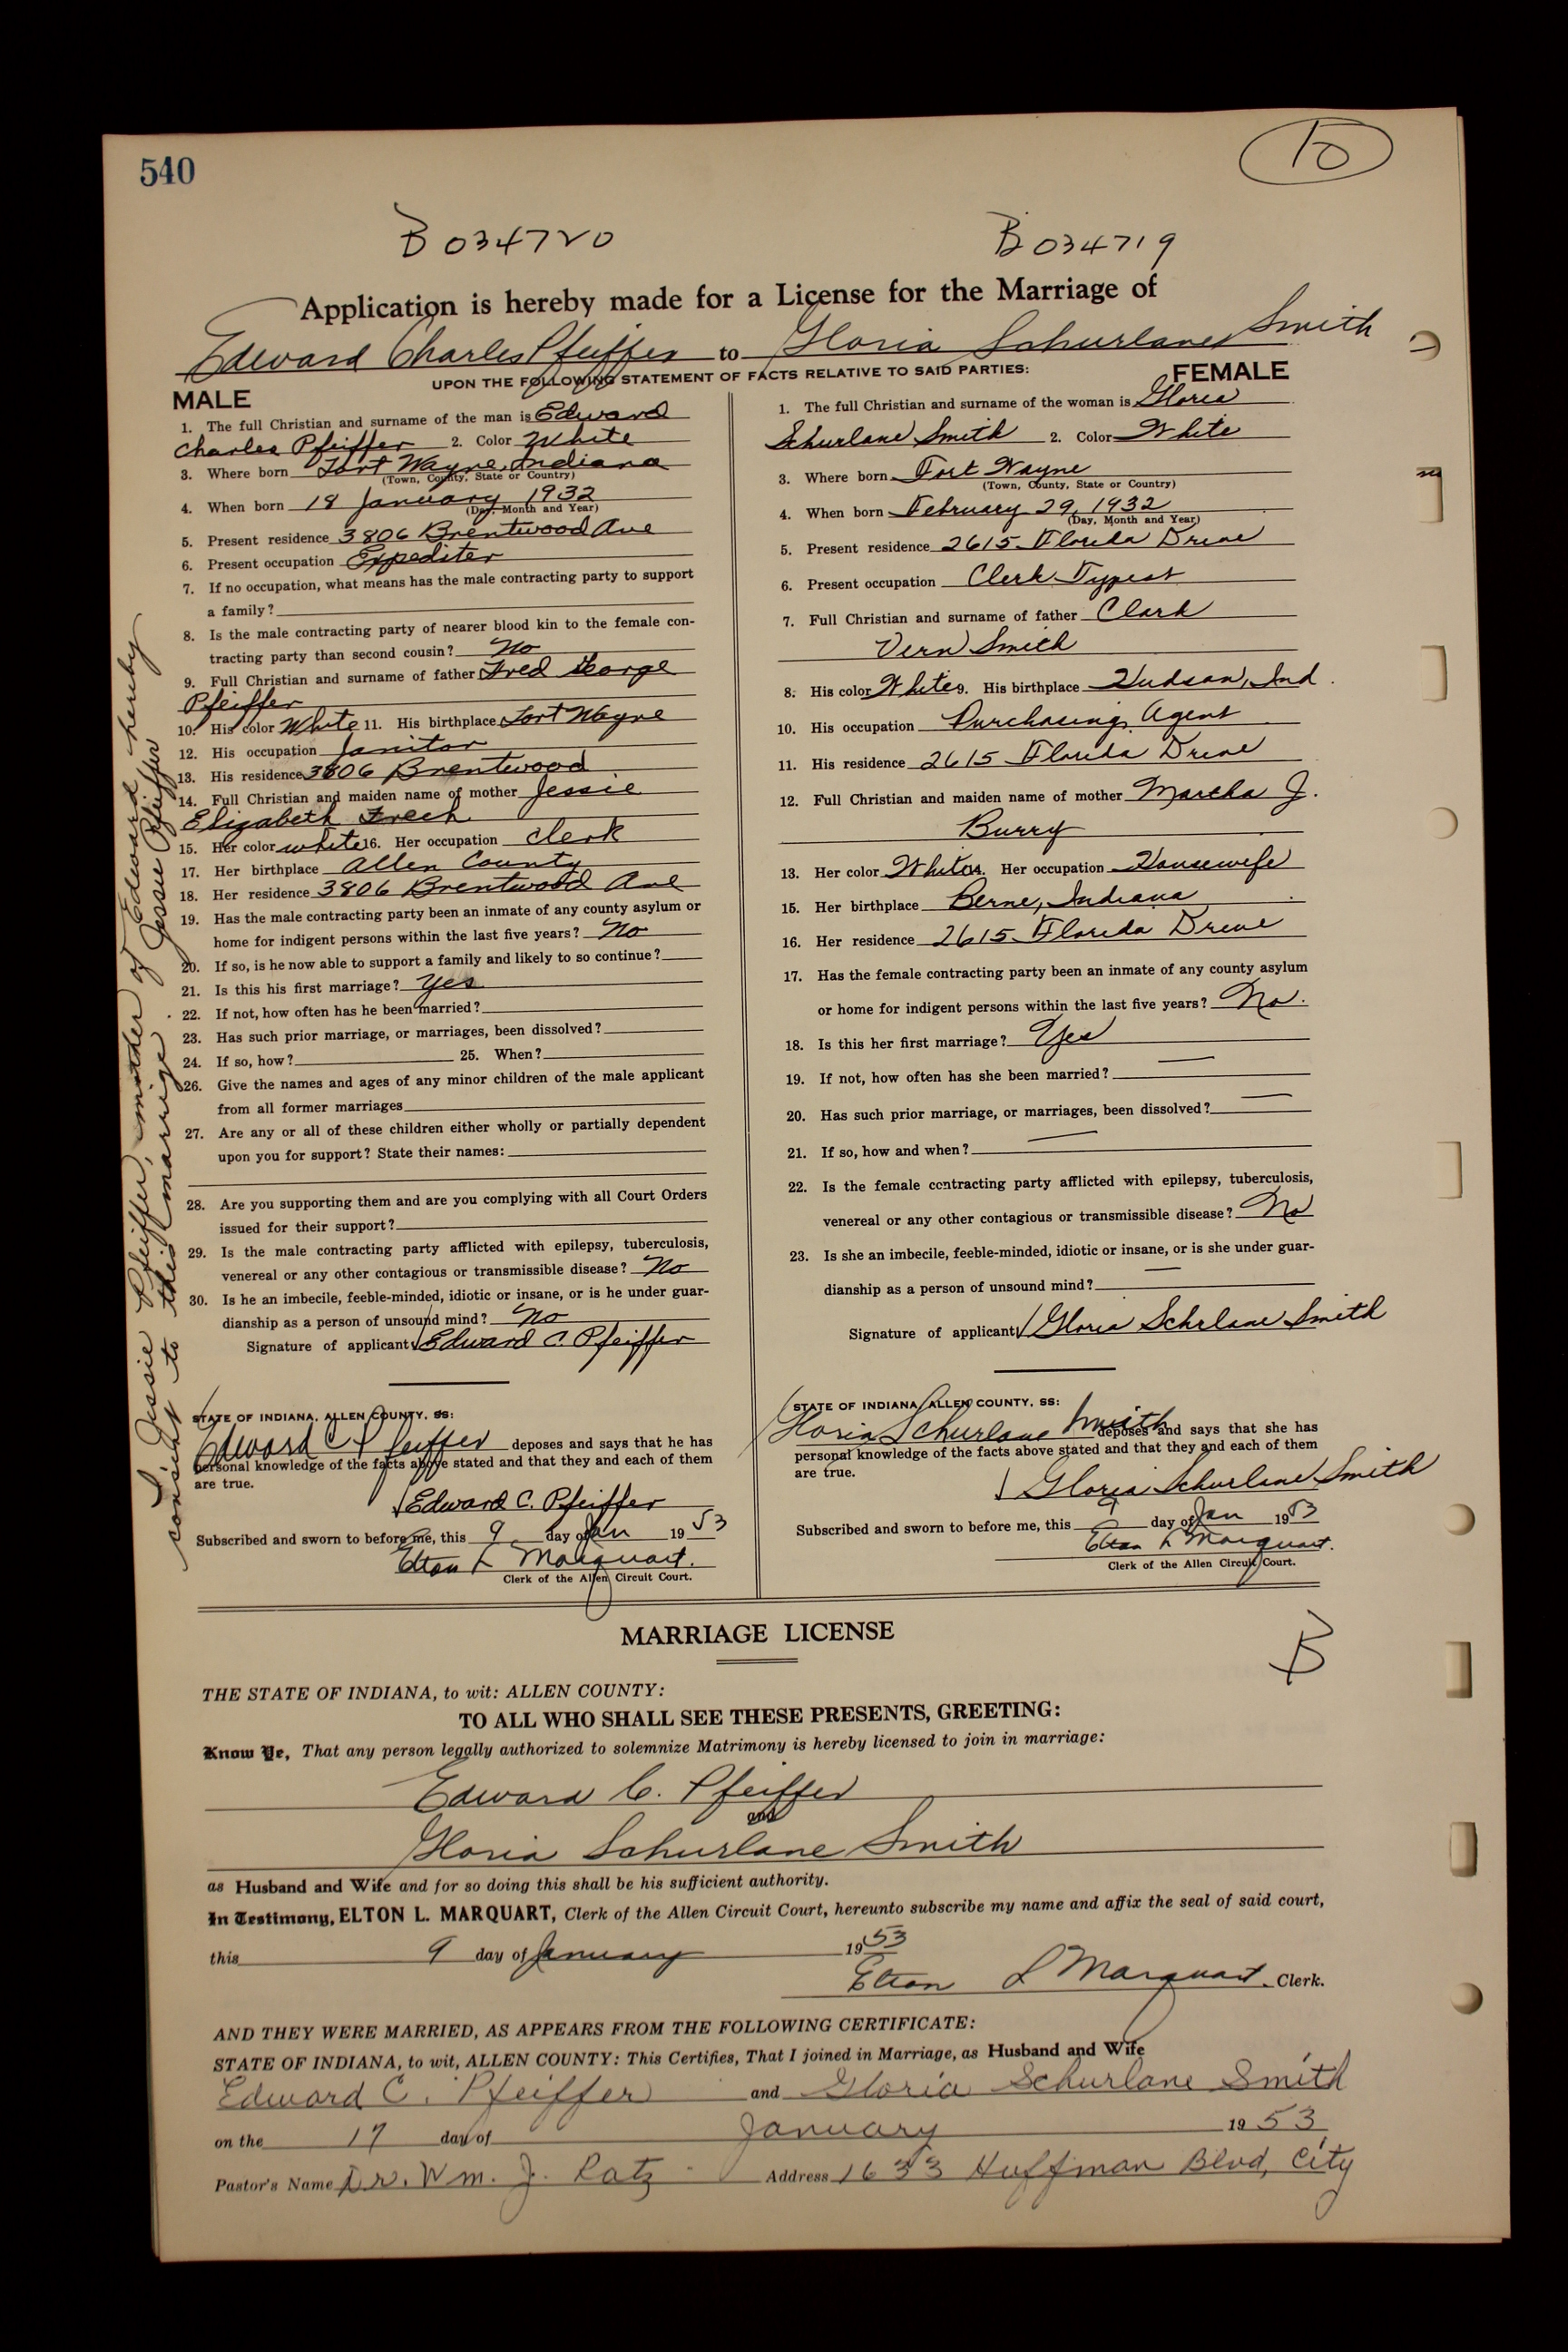 540
10
B 034720
B 034719
Application is hereby made for a License for the Marriage of
Edward Charles Pfeiffer to Gloria Schurlane Smith
UPON THE FOLLOWING STATEMENT OF FACTS RELATIVE TO SAID PARTIES:
MALE
1. The full Christian and surname of the man is Edward
Charles Pfeiffer 2. Color White
3. Where born Fort Wayne, Indiana
(Town, County, State or Country)
4. When born 18 January 1932
(Day, Month and Year)
5. Present residence 3806 Brentwood Ave
6. Present occupation Expediter
7. If no occupation, what means has the male contracting party to support
a family?
8. Is the male contracting party of nearer blood kin to the female con-
tracting party than second cousin? No
9. Full Christian and surname of father Fred George
Pfeiffer
10. His color White 11. His birthplace Fort Wayne
12. His occupation Janitor
13. His residence 3806 Brentwood
14. Full Christian and maiden name of mother Jessie
Elizabeth Frech
15. Her color white 16. Her occupation Clerk
17. Her birthplace Allen County
18. Her residence 3806 Brentwood Ave
19. Has the male contracting party been an inmate of any county asylum or
home for indigent persons within the last five years? No
20. If so, is he now able to support a family and likely to so continue?
21. Is this his first marriage? Yes
22. If not, how often has he been married?
23. Has such prior marriage, or marriages, been dissolved?
24. If so, how? 25. When?
26. Give the names and ages of any minor children of the male applicant
from all former marriages
27. Are any or all of these children either wholly or partially dependent
upon you for support? State their names:
28. Are you supporting them and are you complying with all Court Orders
issued for their support?
29. Is the male contracting party afflicted with epilepsy, tuberculosis,
venereal or any other contagious or transmissible disease? No
30. Is he an imbecile, feeble-minded, idiotic or insane, or is he under guar-
dianship as a person of unsound mind? No
Signature of applicant Edward C. Pfeiffer
STATE OF INDIANA, ALLEN COUNTY, SS:
Edward C Pfeiffer deposes and says that he has
personal knowledge of the facts above stated and that they and each of them
are true.
Edward C. Pfeiffer
Subscribed and sworn to before me, this 9 day of Jan 1953
Elton L Marquart.
Clerk of the Allen Circuit Court.
I Jessie Pfeiffer, mother of Edward hereby
consent to this marriage Jessie Pfeiffer
FEMALE
1. The full Christian and surname of the woman is Gloria
Schurlane Smith 2. Color White
3. Where born Fort Wayne
(Town, County, State or Country)
4. When born February 29, 1932
(Day, Month and Year)
5. Present residence 2615 Florida Drive
6. Present occupation Clerk Typist
7. Full Christian and surname of father Clark
Vern Smith
8. His color White 9. His birthplace Hudson, Ind.
10. His occupation Purchasing Agent
11. His residence 2615 Florida Drive
12. Full Christian and maiden name of mother Martha J.
Burry
13. Her color White 14. Her occupation Housewife
15. Her birthplace Berne, Indiana
16. Her residence 2615 Florida Drive
17. Has the female contracting party been an inmate of any county asylum
or home for indigent persons within the last five years? No.
18. Is this her first marriage? Yes
19. If not, how often has she been married? —
20. Has such prior marriage, or marriages, been dissolved? —
21. If so, how and when? —
22. Is the female contracting party afflicted with epilepsy, tuberculosis,
venereal or any other contagious or transmissible disease? No
23. Is she an imbecile, feeble-minded, idiotic or insane, or is she under guar-
dianship as a person of unsound mind? —
Signature of applicant Gloria Schrlane Smith
STATE OF INDIANA, ALLEN COUNTY, SS:
Gloria Schurlane Smith deposes and says that she has
personal knowledge of the facts above stated and that they and each of them
are true.
Gloria Schurlane Smith
Subscribed and sworn to before me, this 9 day of Jan 1953
Elton L Marquart.
Clerk of the Allen Circuit Court.
MARRIAGE LICENSE
B
THE STATE OF INDIANA, to wit: ALLEN COUNTY:
TO ALL WHO SHALL SEE THESE PRESENTS, GREETING:
Know Ye, That any person legally authorized to solemnize Matrimony is hereby licensed to join in marriage:
Edward C. Pfeiffer
and
Gloria Schurlane Smith
as Husband and Wife and for so doing this shall be his sufficient authority.
In Testimony, ELTON L. MARQUART, Clerk of the Allen Circuit Court, hereunto subscribe my name and affix the seal of said court,
this 9 day of January 1953
Elton L Marquart. Clerk.
AND THEY WERE MARRIED, AS APPEARS FROM THE FOLLOWING CERTIFICATE:
STATE OF INDIANA, to wit, ALLEN COUNTY: This Certifies, That I joined in Marriage, as Husband and Wife
Edward C. Pfeiffer and Gloria Schurlane Smith
on the 17 day of January 1953
Pastor's Name Dr. Wm. J. Ratz Address 1633 Huffman Blvd, City